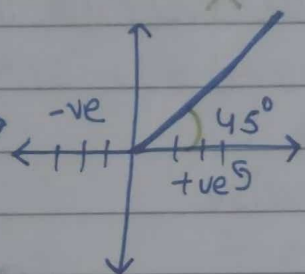 -ve
45°
+ve